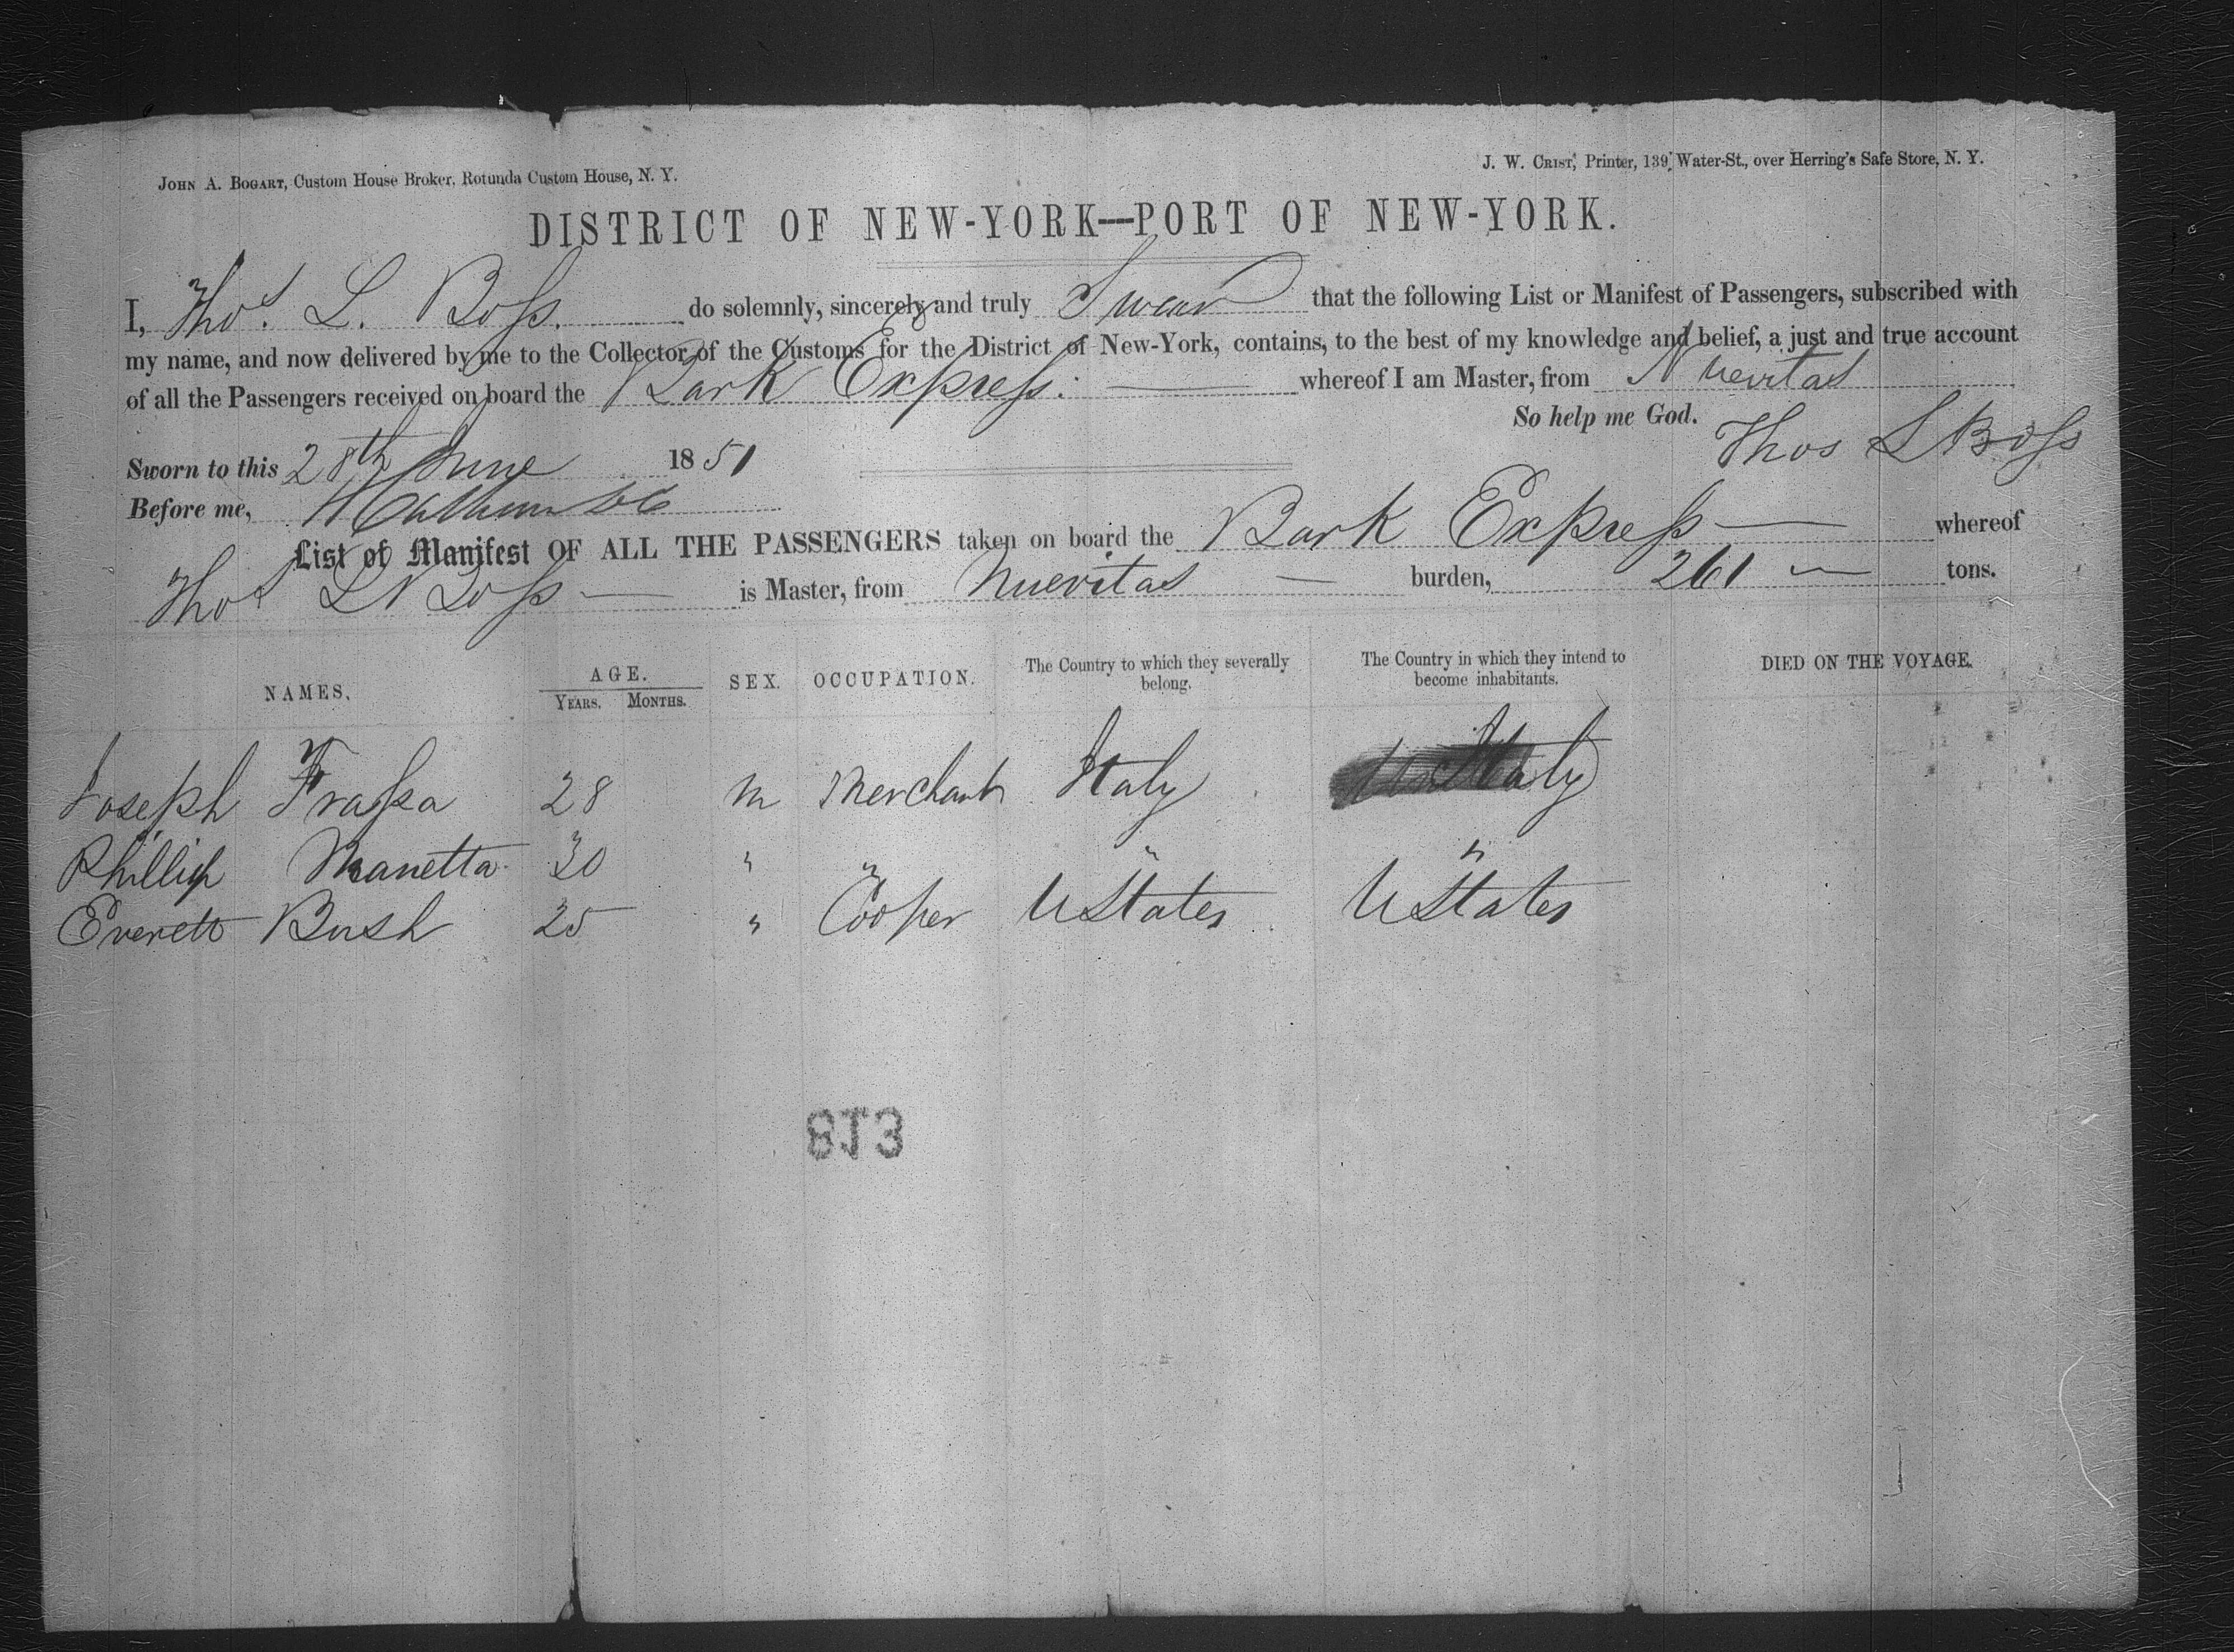 JOHN A. BOGART, Custom House Broker, Rotunda Custom House, N. Y.
J. W. CRIST, Printer, 139 Water-St., over Herring's Safe Store, N. Y.
DISTRICT OF NEW-YORK—PORT OF NEW-YORK.
I, Thos. L. Boss. do solemnly, sincerely and truly Swear that the following List or Manifest of Passengers, subscribed with
my name, and now delivered by me to the Collector of the Customs for the District of New-York, contains, to the best of my knowledge and belief, a just and true account
of all the Passengers received on board the Bark Express. whereof I am Master, from Nuevitas
So help me God.
Thos L Boss
Sworn to this 28th June 1851
Before me,
List of Manifest OF ALL THE PASSENGERS taken on board the Bark Express whereof
Thos L Boss is Master, from Nuevitas burden, 261 tons.
NAMES. AGE. YEARS. MONTHS. SEX. OCCUPATION. The Country to which they severally belong. The Country in which they intend to become inhabitants. DIED ON THE VOYAGE.
Joseph Frassa 28 M Merchant Italy Italy
Phillip Manetta 30 " " " "
Everett Bush 25 " Cooper UStates UStates
813